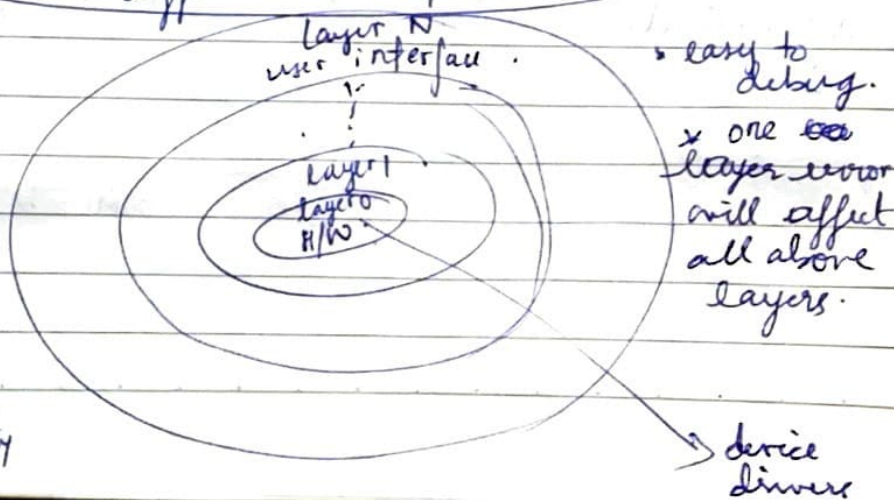 Layer N
user interface
Layer 1
Layer 0
H/W
• easy to
debug.
* one
layer error
will affect
all above
layers.
device
drivers